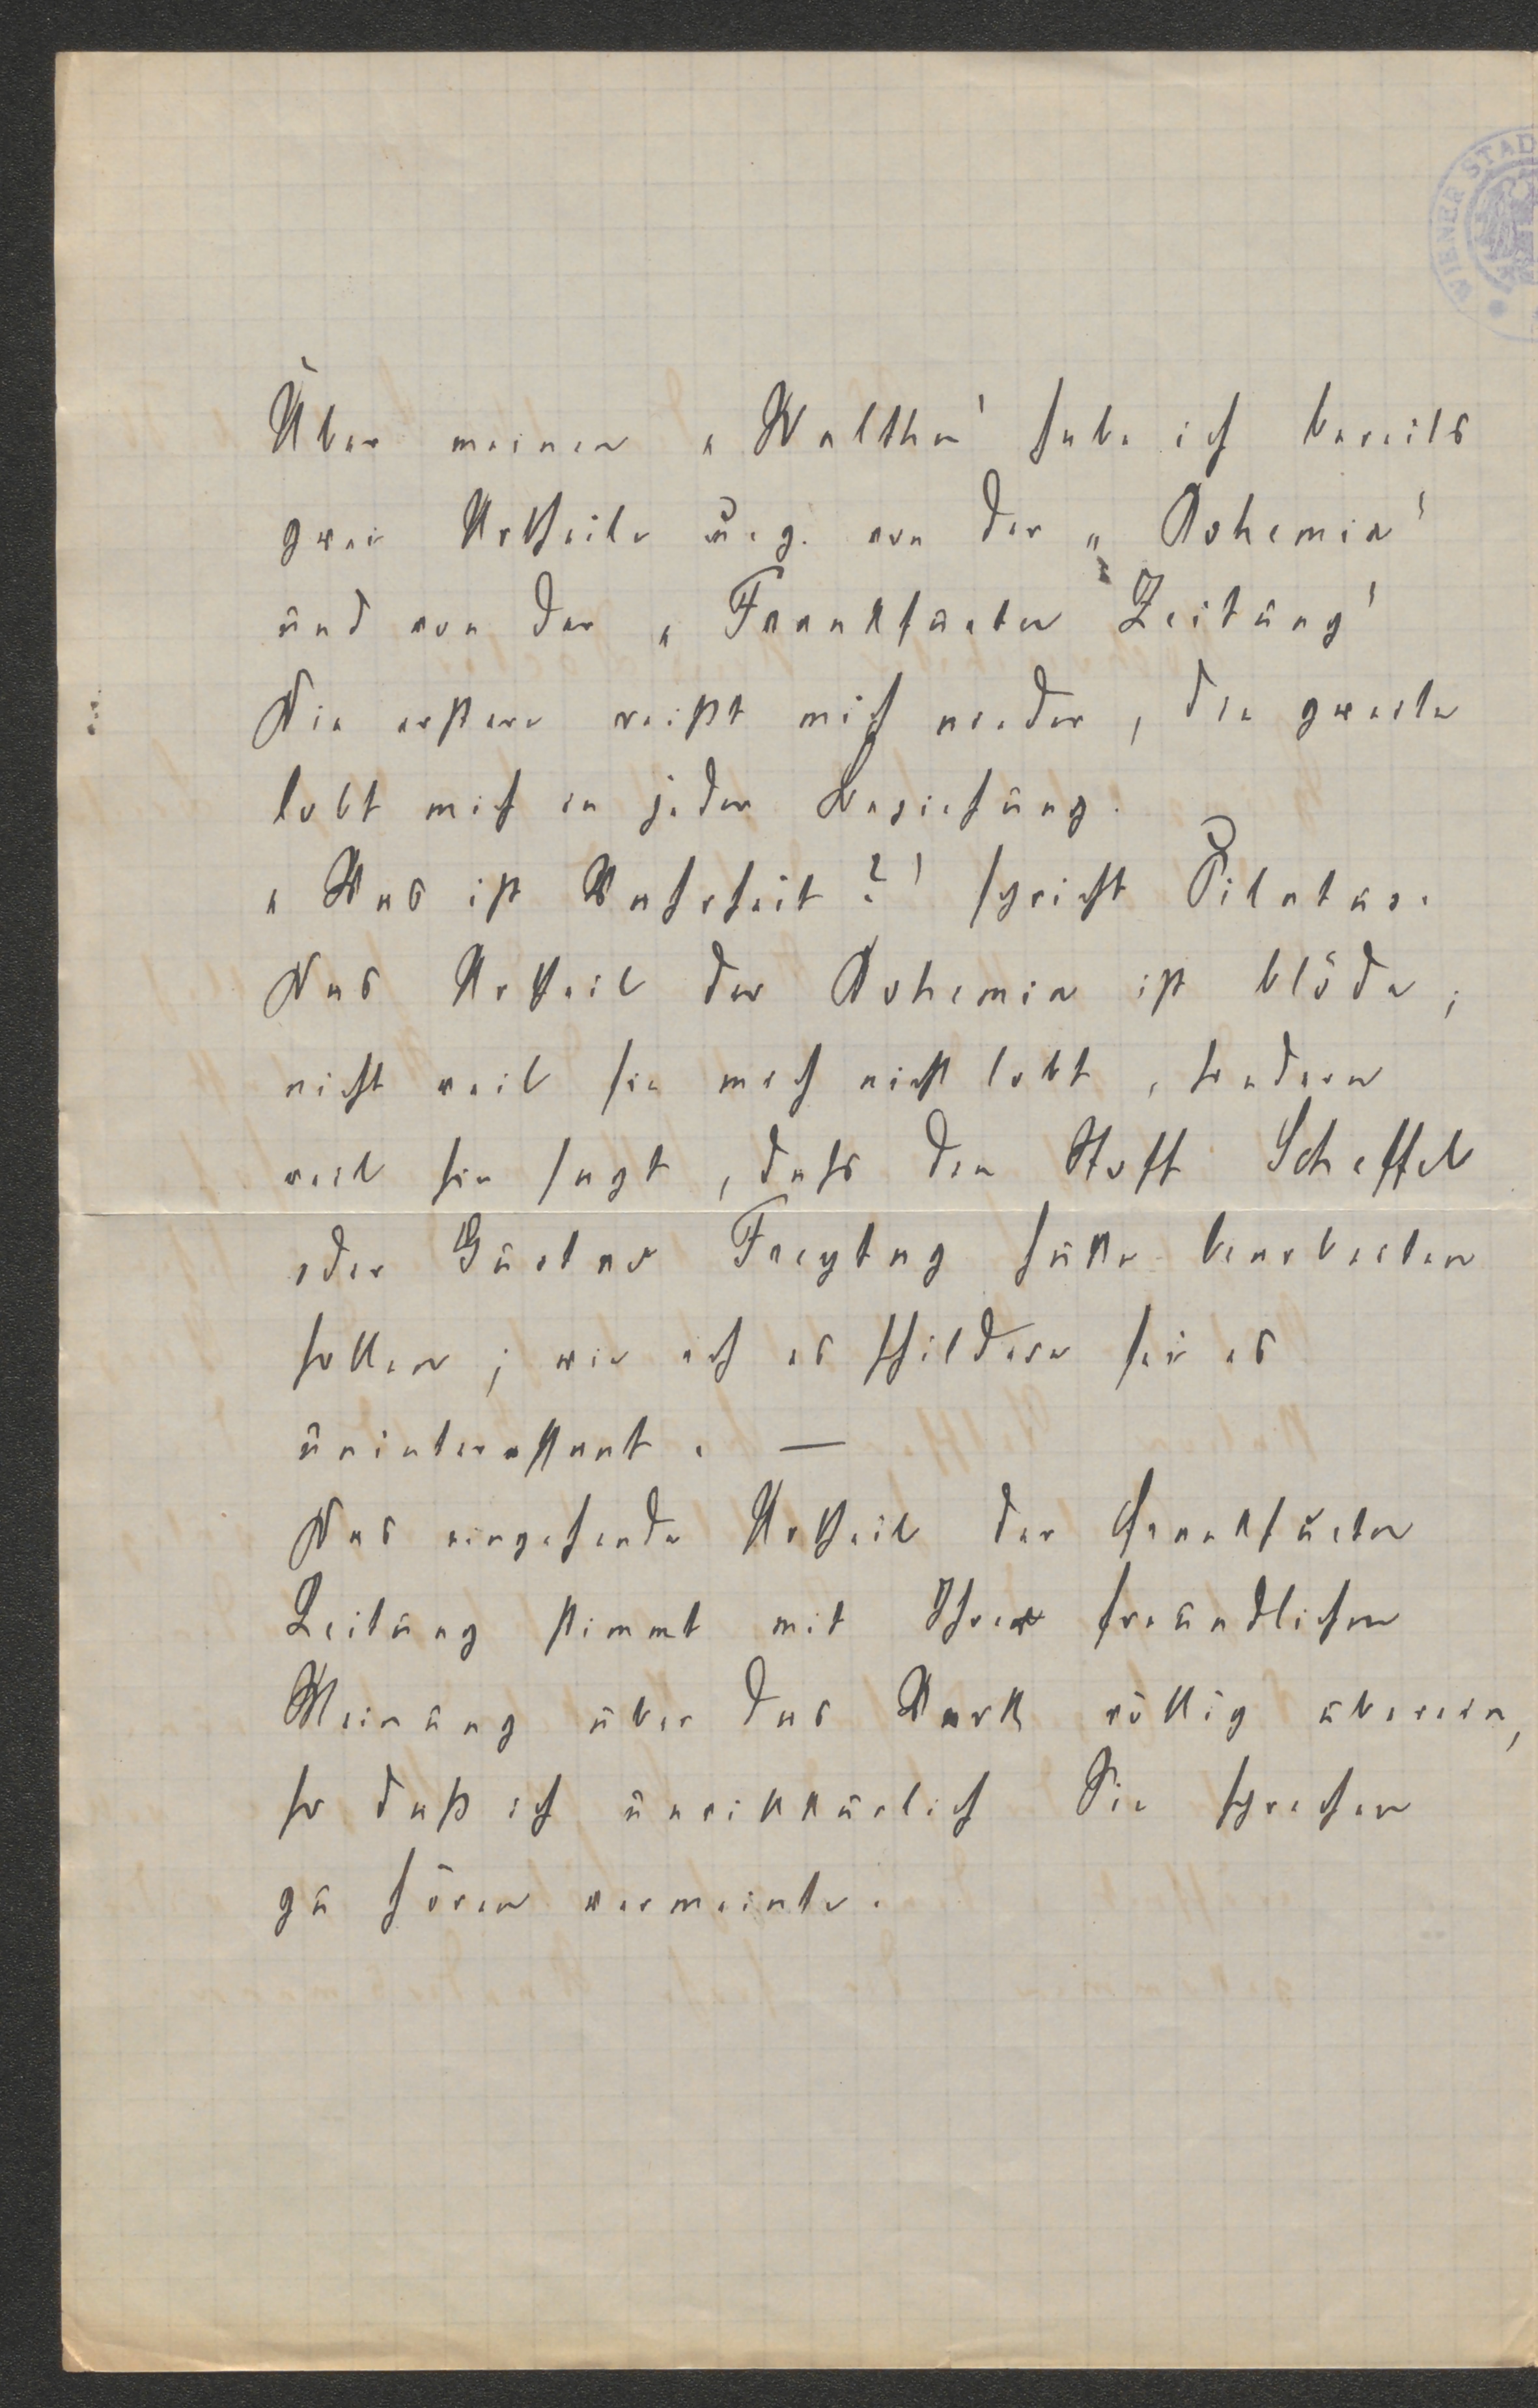 WIENER STAD
Über meinen „Walther" habe ich bereits
zwei Urtheile u. z. von der „Bohemia"
und von der „Frankfurter Zeitung"
Die erstere reißt mich nieder, die zweite
lobt mich in jeder Beziehung.
„Was ist Wahrheit?" spricht Pilatus.
Das Urtheil der Bohemia ist blöde;
nicht weil sie mich nicht lobt, sondern
weil sie sagt, dass den Stoff Scheffel
oder Gustav Freytag hätte bearbeiten
sollen; wie ich es schildere sei es
uninteressant. —
Das eingehende Urtheil der Frankfurter
Zeitung stimmt mit Ihrer freundlichen
Meinung über das Werk völlig überein,
so daß ich unwillkürlich Sie sprechen
zu hören vermeinte.